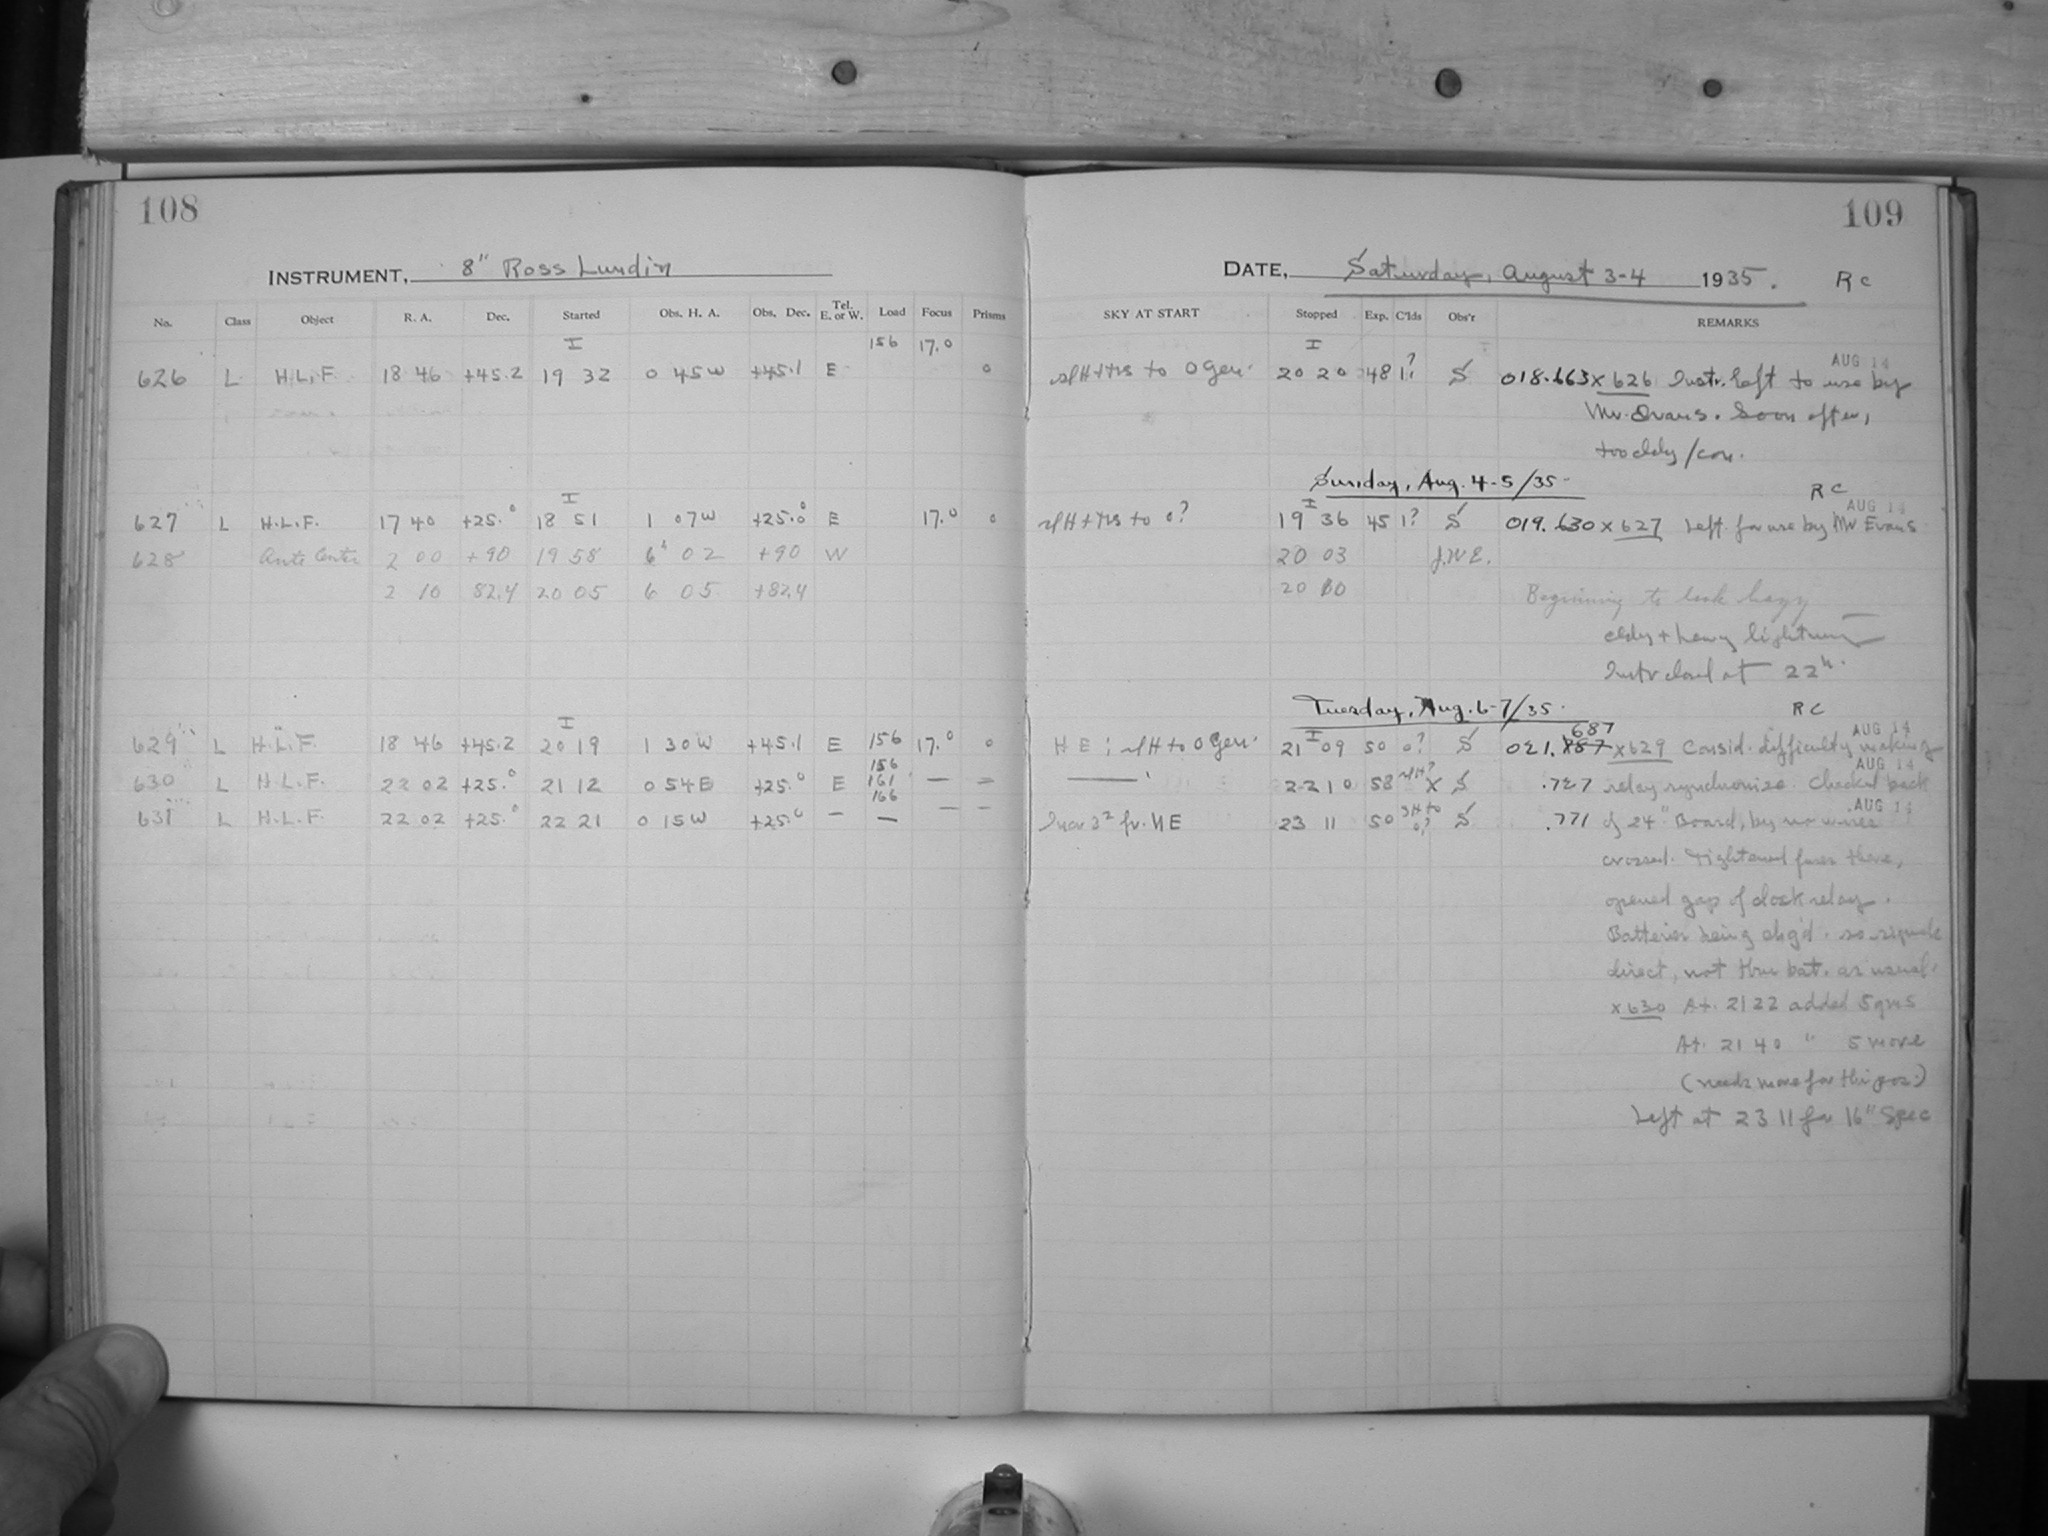 108
INSTRUMENT, 8" Ross Lundin
No. Class Object R. A. Dec. Started Obs. H. A. Obs. Dec. Tel. E. or W. Load Focus Prisms
I 156 17.0
626 L H.L.F. 18 46 +45.2 19 32 0 45W +45.1 E 0
I
627 L H.L.F. 17 40 +25.0 18 51 1 07W +25.0 E 17.0 0
628 2 00 +90 19 58 6h 02 +90 W
2 10 82.4 20 05 6 05 +82.4
I
629 L H.L.F. 18 46 +45.2 20 19 1 30W +45.1 E 156 17.0 0
156
630 L H.L.F. 22 02 +25.0 21 12 0 54E +25.0 E 161 — =
166
631 L H.L.F. 22 02 +25.0 22 21 0 15W +25.0 — — — —
109
DATE, Saturday, August 3-4 1935. RC
SKY AT START Stopped Exp. C'lds Obs'r REMARKS
I AUG 14
to 0 Gen. 20 20 48 1? S 018.663 x 626 Instr. left to use by
Mr. Evans. Soon after,
Sunday, Aug. 4-5/35 RC
I AUG 14
to 0? 19 36 45 1? S 019.630 x 627 Left for use by Mr Evans
20 03 J.W.E.
20 Beginning to look hazy
cldy + heavy lightning
Instr closed at 22h.
Tuesday, Aug. 6-7/35. RC
I 687 AUG 14
HE; to 0 Gen. 21 09 50 0? S 021.887 x 629 Consid. difficulty making
AUG 14
22 10 58 X S .727 relay synchronize. Checked back
AUG 14
fr. NE 23 11 50 to 0? S .771 of 24" Board, by no wires
crossed. Tightened fuses there,
opened gap of clock relay.
Batteries being chg'd. so signals
direct, not thru bat. as usual.
x 630 At. 21 22 added 5 gms
At. 21 40 " 5 more
(needs more for this pos.)
Left at 23 11 for 16" Spec